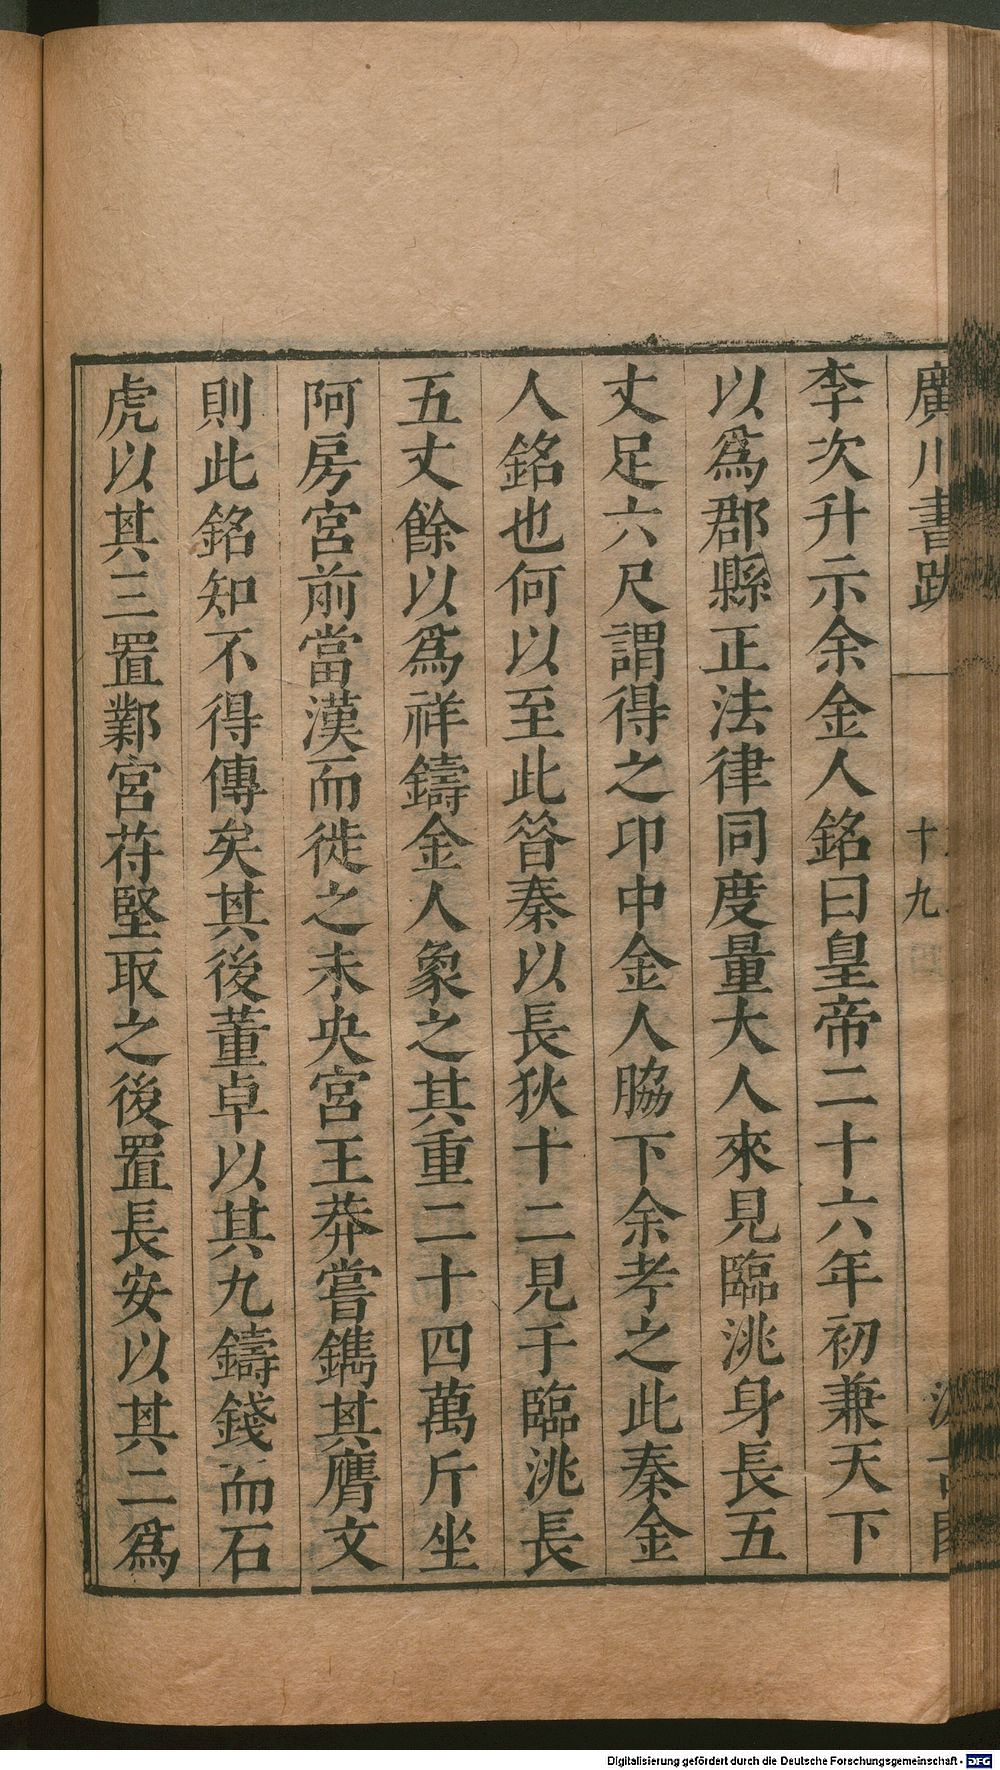 廣川書跋 十九
李次升示余金人銘曰皇帝二十六年初兼天下
以爲郡縣正法律同度量大人來見臨洮身長五
丈足六尺謂得之印中金人脇下余考之此秦金
人銘也何以至此㫺秦以長狄十二見于臨洮長
五丈餘以爲祥鑄金人象之其重二十四萬斤坐
阿房宮前當漢而徙之未央宮王莽嘗鐫其膺文
則此銘知不得傳矣其後董卓以其九鑄錢而石
虎以其三置鄴宮苻堅取之後置長安以其二爲
Digitalisierung gefördert durch die Deutsche Forschungsgemeinschaft - DFG